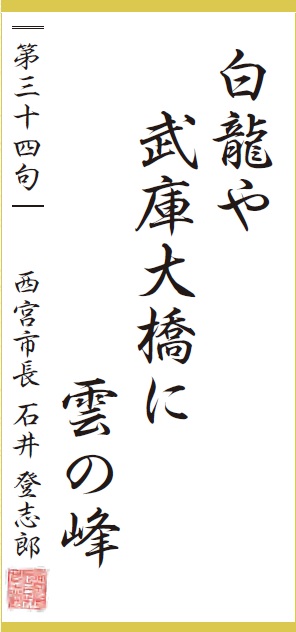 白龍や
武庫大橋に
雲の峰
第三十四句
西宮市長 石井 登志郎